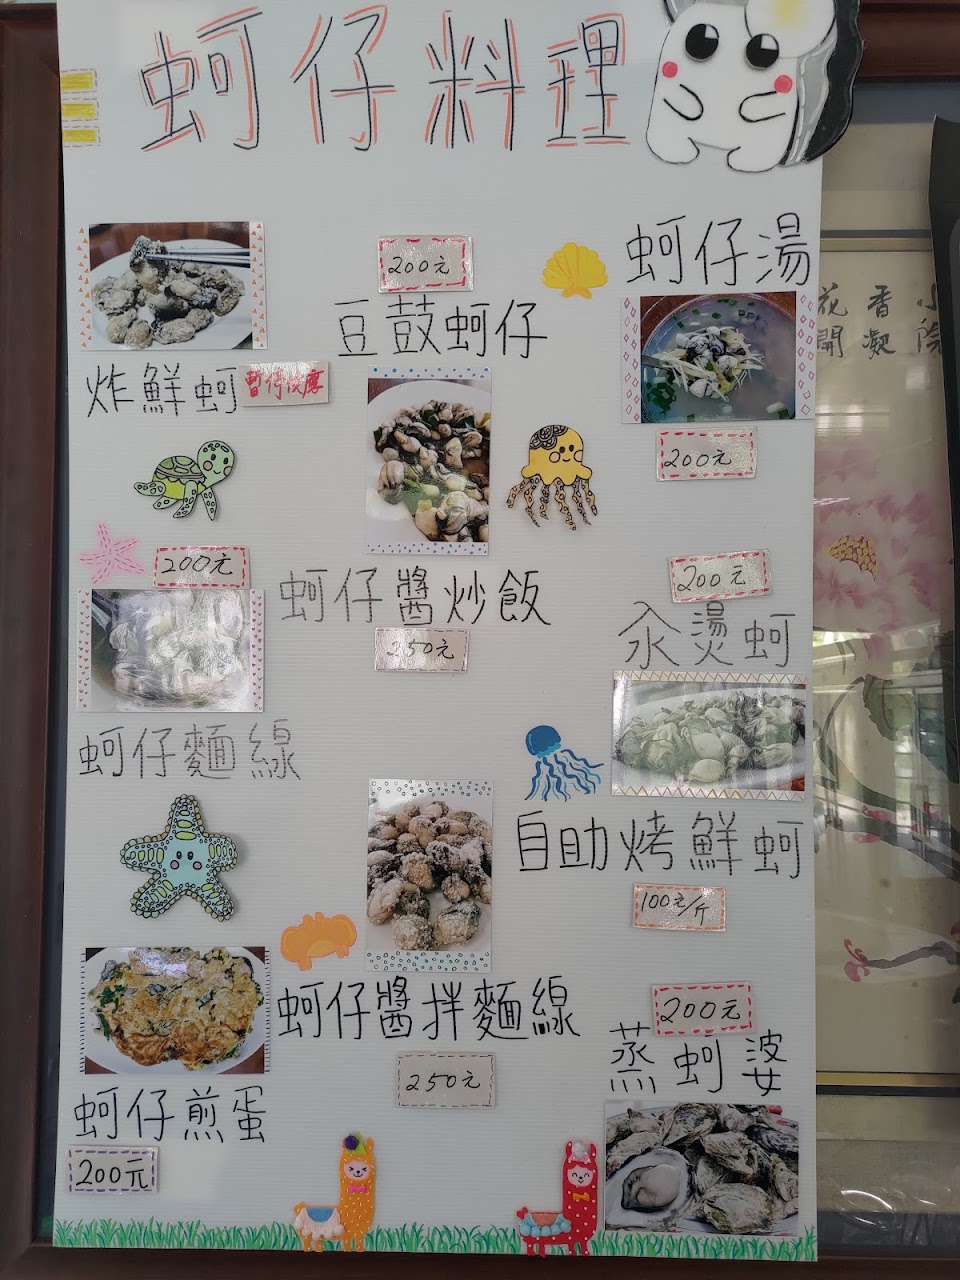 蚵仔料理
炸鮮蚵
200元
豆鼓蚵仔
蚵仔湯
200元
200元
蚵仔麵線
蚵仔醬炒飯
250元
200元
汆燙蚵
自助烤鮮蚵
100元/斤
蚵仔煎蛋
200元
蚵仔醬拌麵線
250元
200元
蒸蚵婆
小院
香凝
花開